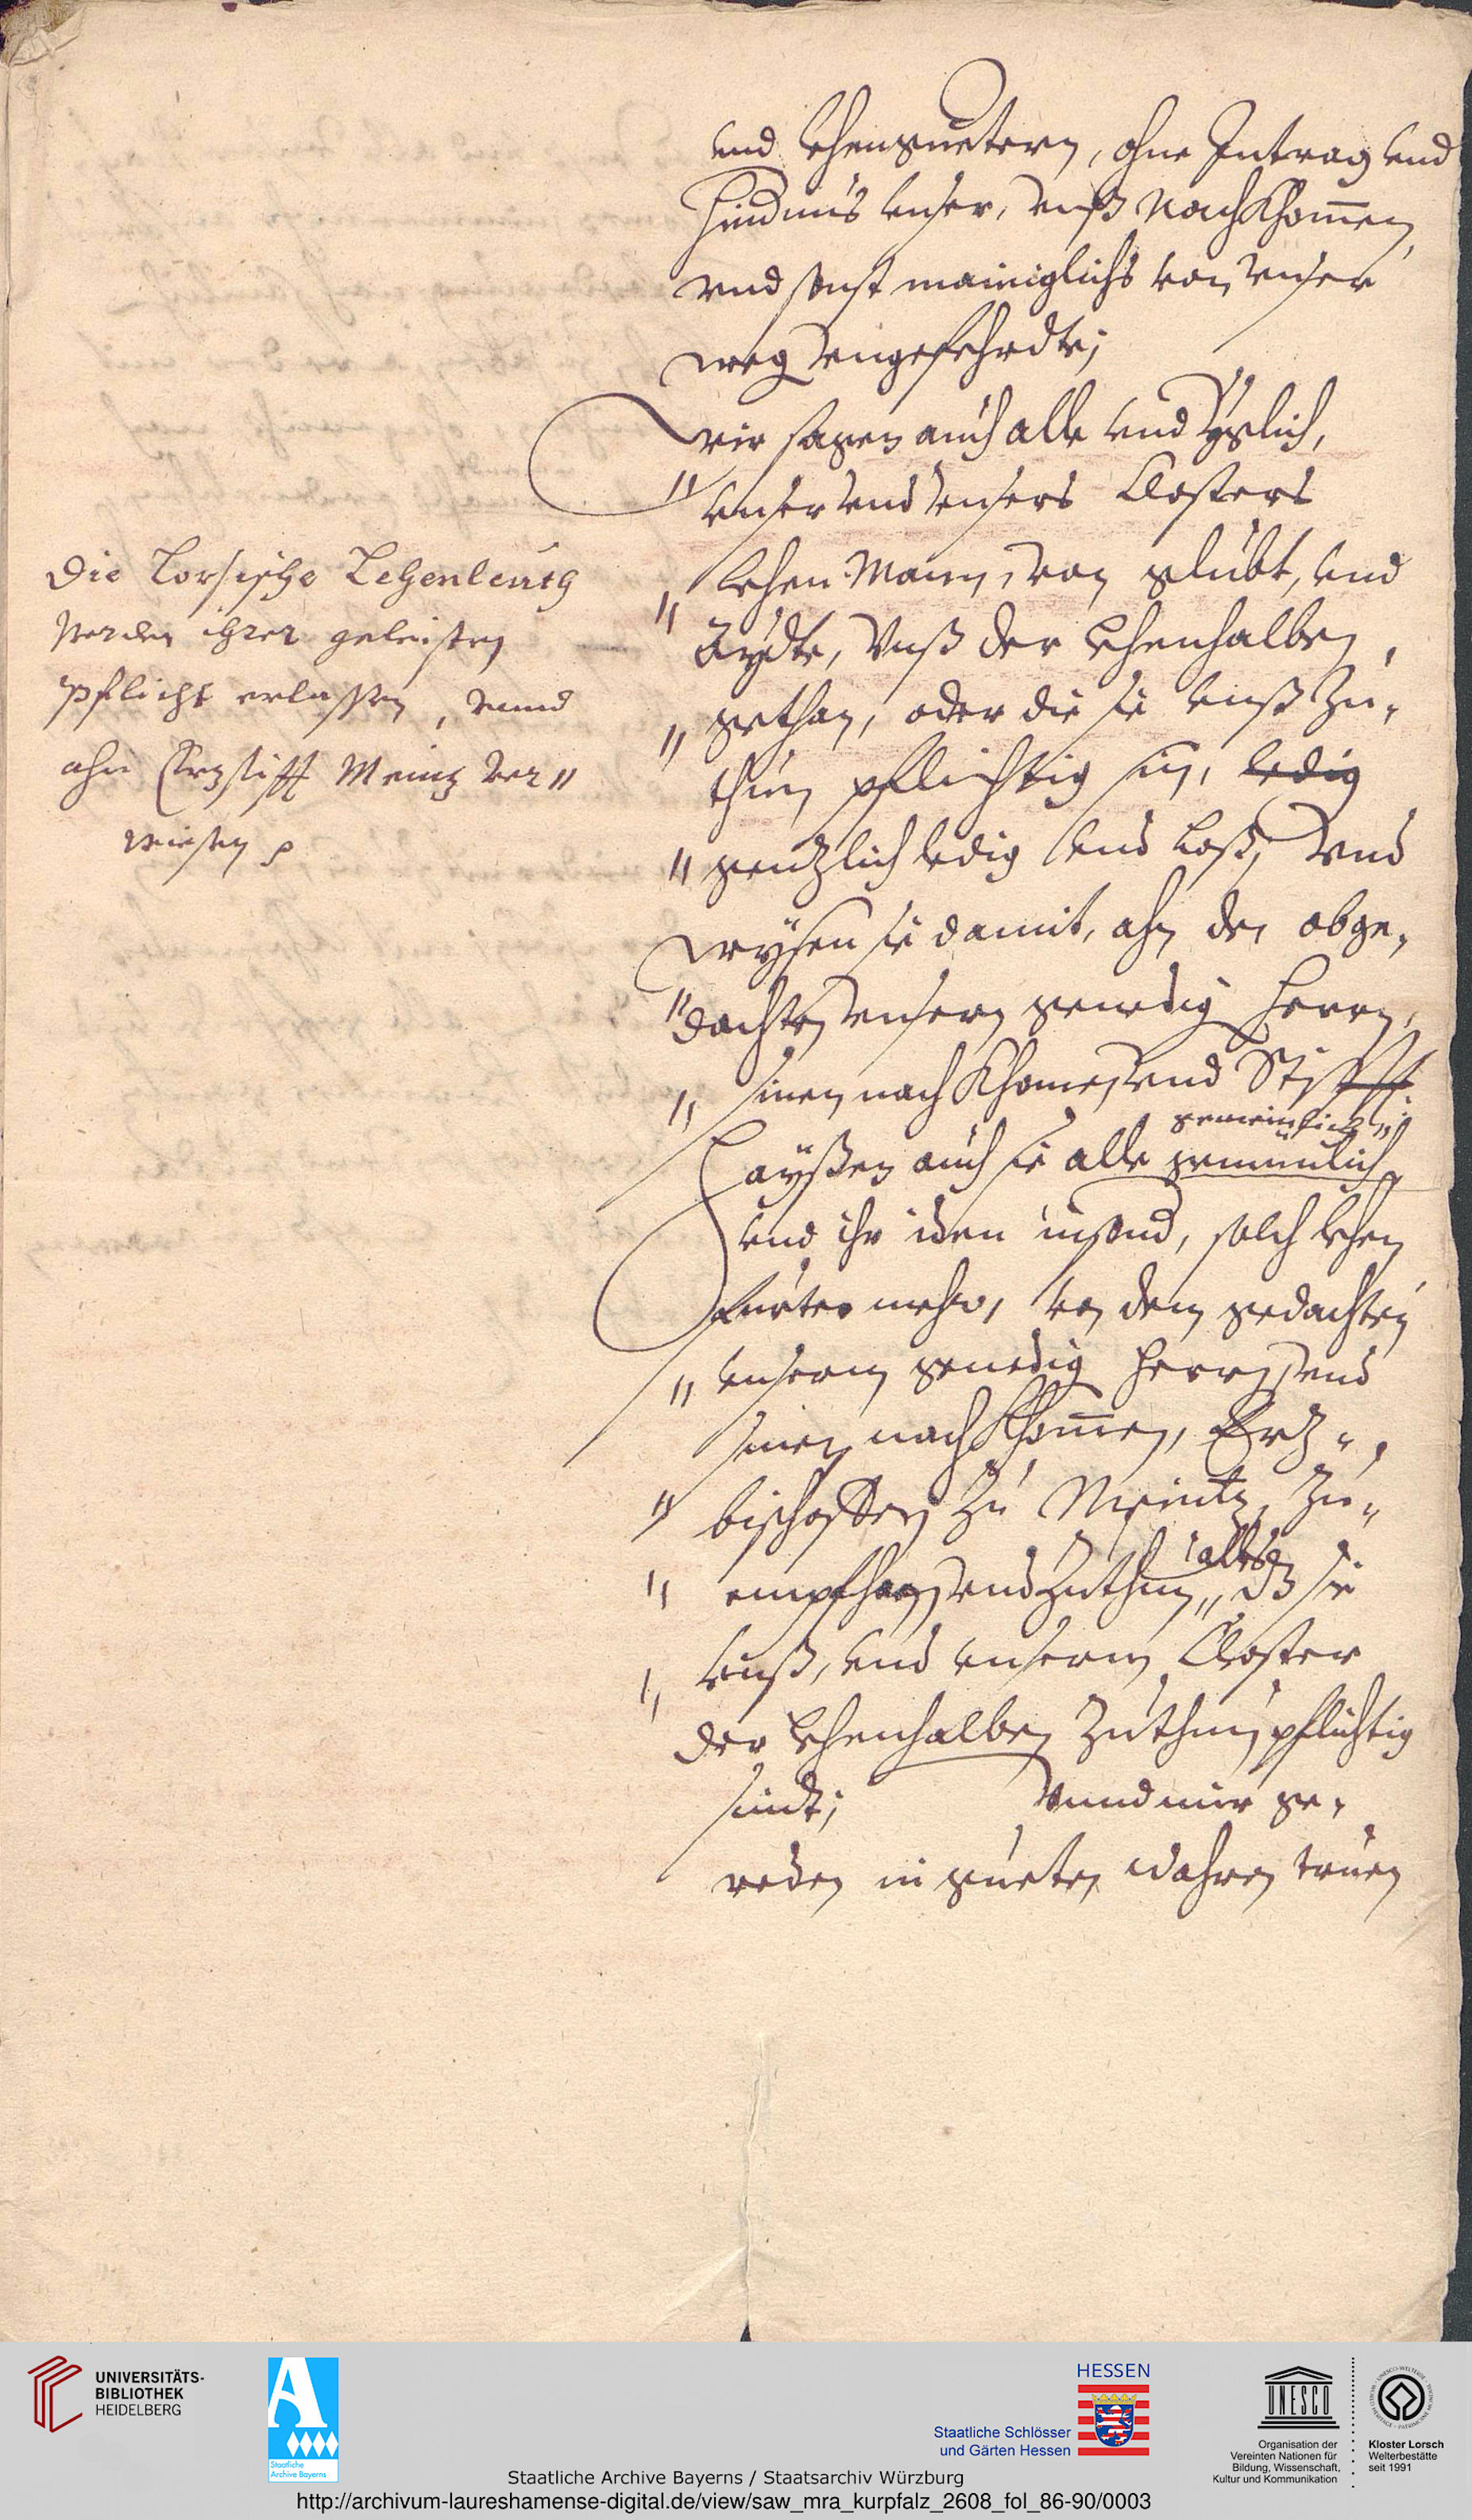 vnd Lehenguetern, ohne Intrag vnd
Hindnus vnser, vnß Nachkhomen
vnd sonst mainiglichs von vnser
weg vngefehrdte;
Wir sagen auch alle vnd yglich,
" vnser vnd vnsers Closters
" Lehen Mann, von glubt, vnd
Aydte, Vnß der Lehenhalben,
" gethan, oder die sie vnß zu"
thun pflichtig sin, ledig
" gentzlich ledig vnd Loß, Vnd
weysen sie damit, ahn den obge"
" dachten vnsern genedig Herrn,
" sinen nachkhomen vnd Stifft
gemeinlich"
Hayßen auch sie alle gemeinlich,
vnd ihr iden insond, solch Lehen
furter mehr, von dem gedachten
" vnserm genedig Herrn vnd
sinen nachkhomen, Ertz"
" bischoffen zu Meintz, zu"
alles
" empfahen vnd zuthun,, dß sie
" vnß, vnd vnserm Closter
der Lehenhalben zuthun pflichtig
sindt; Vnnd wir ge"
reden in gueten wahren truen
Die Lorsische Lehenleuth
Werden ihrer geleisten
Pflicht erlassen, vnnd
ahn Ertzstifft Meintz ver"
wiesen
UNIVERSITÄTS-
BIBLIOTHEK
HEIDELBERG
Staatliche
Archive Bayerns
HESSEN
Staatliche Schlösser
und Gärten Hessen
UNESCO
Organisation der
Vereinten Nationen für
Bildung, Wissenschaft,
Kultur und Kommunikation
Kloster Lorsch
Welterbestätte
seit 1991
Staatliche Archive Bayerns / Staatsarchiv Würzburg
http://archivum-laureshamense-digital.de/view/saw_mra_kurpfalz_2608_fol_86-90/0003